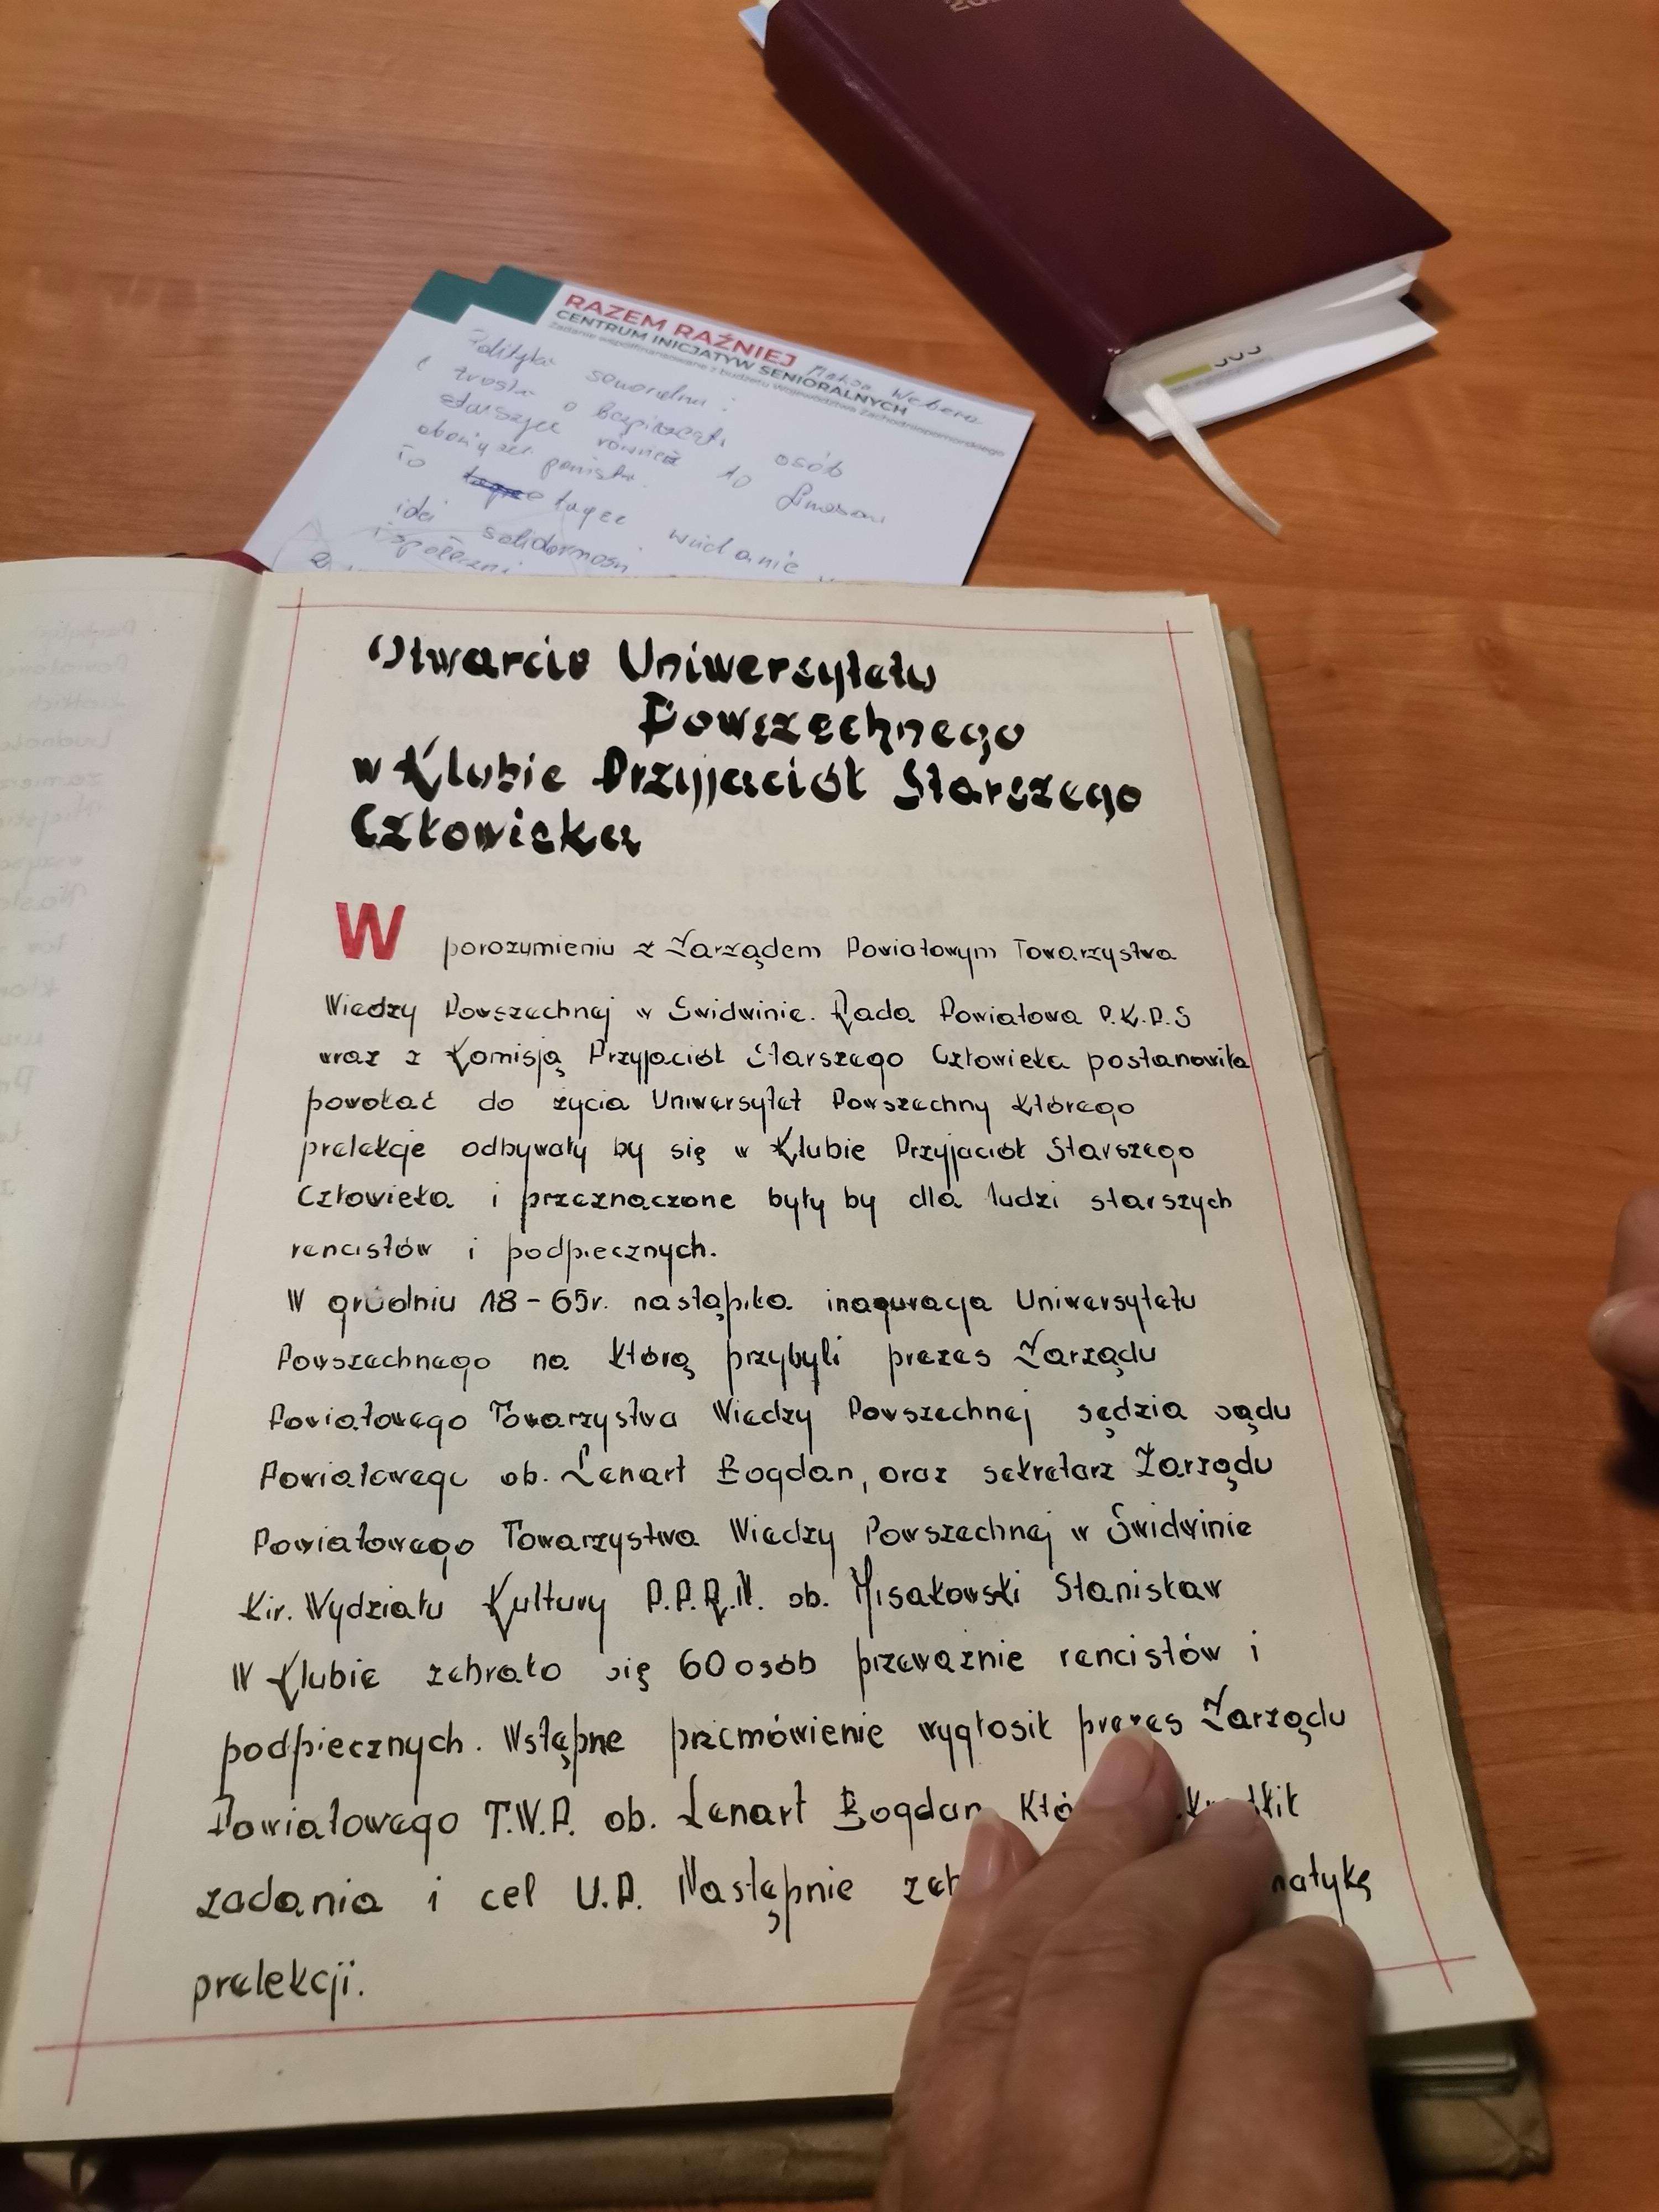 RAZEM RAŹNIEJ
CENTRUM INICJATYW SENIORALNYCH
Zadanie współfinansowane z budżetu Województwa Zachodniopomorskiego
Polityka
starszych również to
osób
to łączę
idei solidarności
Otwarcie Uniwersytetu
Powszechnego
w Klubie Przyjaciół Starszego
Człowieka
W porozumieniu z Zarządem Powiatowym Towarzystwa
Wiedzy Powszechnej w Świdwinie. Rada Powiatowa P.K.P.S
wraz z Komisją Przyjaciół Starszego Człowieka postanowiła
powołać do życia Uniwersytet Powszechny którego
prelekcje odbywały by się w Klubie Przyjaciół Starszego
Człowieka i przeznaczone były by dla ludzi starszych
rencistów i podpiecznych.
W grudniu 18-65r. nastąpiła inaguracja Uniwersytetu
Powszechnego na którą przybyli prezes Zarządu
Powiatowego Towarzystwa Wiedzy Powszechnej sędzia sądu
Powiatowego ob. Lenart Bogdan, oraz sekretarz Zarządu
Powiatowego Towarzystwa Wiedzy Powszechnej w Świdwinie
Kir. Wydziału Kultury P.P.R.N. ob. Misakowski Stanisław
W Klubie zebrało się 60 osób przeważnie rencistów i
podpiecznych. Wstępne przemówienie wygłosił prezes Zarządu
Powiatowego T.W.P. ob. Lenart Bogdan
zadania i cel U.P. Następnie
prelekcji.